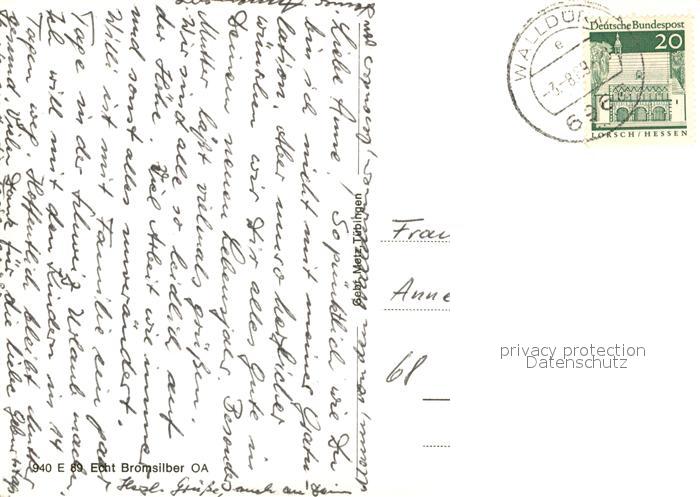 Liebe Anne! So pünktlich wie Du
bin ich nicht mit meiner Gratu
lation, aber umso herzlicher
wünschen wir Dir alles Gute in
Deinem neuen Lebensjahr. Besonders
Mutter läßt vielmals grüßen.
Wir sind alle so leidlich auf
der Höhe. Viel Arbeit wie immer
und sonst alles unverändert.
Willi ist mit Familie ein paar
Tage in der Schweiz Urlaub machen
Ich will mit den Kindern in 14
Tagen weg. Hoffentlich bleibt
gesund. Vielen Dank für die liebe Geburtstags
Herzl. Grüße, auch an Deine
Gebr. Metz Tübingen
940 E 89 Echt Bromsilber OA
Frau
Anne
68
WALLDÜRN
e
-3.-8.69
696
Deutsche Bundespost
20
LORSCH/HESSEN
privacy protection
Datenschutz